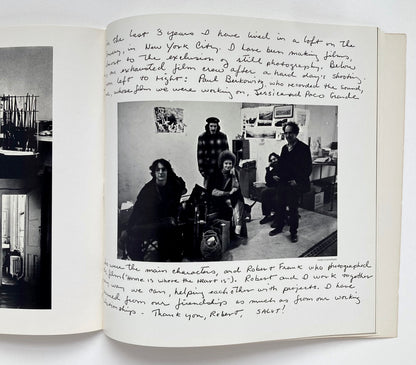 the last 3 years I have lived in a loft on the
, in New York City. I have been making films,
to the exclusion of still photography. Below,
an exhausted film crew after a hard day's shooting,
left to right: Paul Berkowitz who recorded the sound,
, whose film we were working on, Jessie and Paco Grande
were the main characters, and Robert Frank who photographed
film (Home is where the heart is). Robert and I work together
way we can, helping each other with projects. I have
from our friendship as much as from our working
. Thank you, Robert, SALUT!